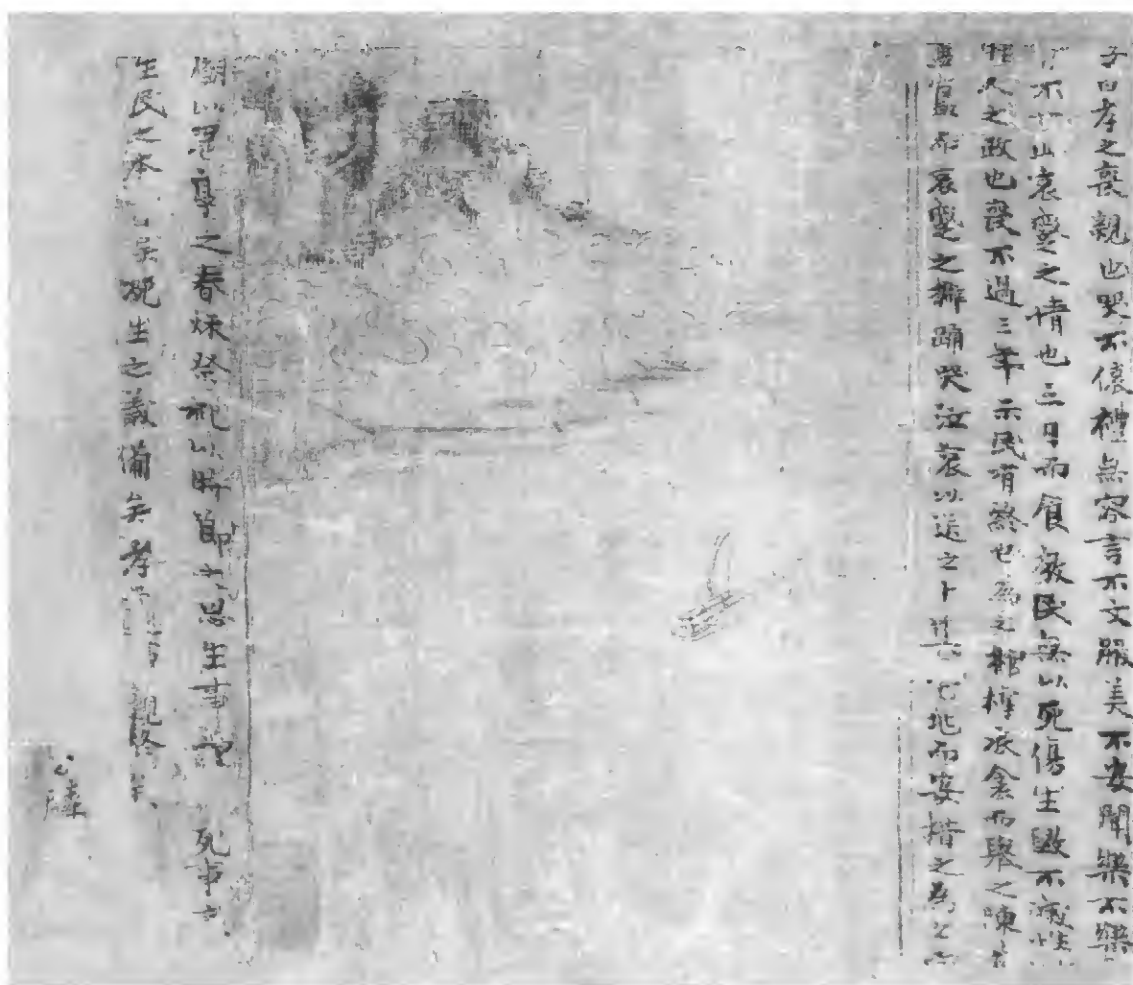 子曰孝之喪親也哭不偯禮無容言不文服美不安聞樂不樂
旨不甘此哀慼之情也三日而食教民無以死傷生毀不滅性
人之政也喪不過三年示民有終也為之棺椁衣衾而舉之陳
簠簋而哀慼之擗踊哭泣哀以送之卜其宅地而安措之為之
廟以鬼享之春秋祭祀以時思生事愛死事
生民之本矣死生之義備矣孝事親終矣
公麟